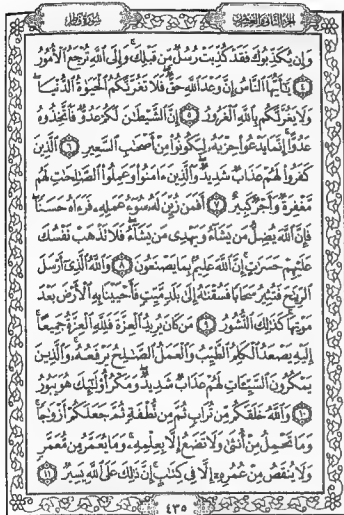 الجزء الثاني والعشرون
سورة فاطر
وَإِن يُكَذِّبُوكَ فَقَدْ كُذِّبَتْ رُسُلٌ مِّن قَبْلِكَ وَإِلَى ٱللَّهِ تُرْجَعُ ٱلْأُمُورُ
٤ يَٰٓأَيُّهَا ٱلنَّاسُ إِنَّ وَعْدَ ٱللَّهِ حَقٌّ فَلَا تَغُرَّنَّكُمُ ٱلْحَيَوٰةُ ٱلدُّنْيَا
وَلَا يَغُرَّنَّكُم بِٱللَّهِ ٱلْغَرُورُ ٥ إِنَّ ٱلشَّيْطَٰنَ لَكُمْ عَدُوٌّ فَٱتَّخِذُوهُ
عَدُوًّا إِنَّمَا يَدْعُوا۟ حِزْبَهُۥ لِيَكُونُوا۟ مِنْ أَصْحَٰبِ ٱلسَّعِيرِ ٦ ٱلَّذِينَ
كَفَرُوا۟ لَهُمْ عَذَابٌ شَدِيدٌ وَٱلَّذِينَ ءَامَنُوا۟ وَعَمِلُوا۟ ٱلصَّٰلِحَٰتِ لَهُم
مَّغْفِرَةٌ وَأَجْرٌ كَبِيرٌ ٧ أَفَمَن زُيِّنَ لَهُۥ سُوٓءُ عَمَلِهِۦ فَرَءَاهُ حَسَنًا
فَإِنَّ ٱللَّهَ يُضِلُّ مَن يَشَآءُ وَيَهْدِى مَن يَشَآءُ فَلَا تَذْهَبْ نَفْسُكَ
عَلَيْهِمْ حَسَرَٰتٍ إِنَّ ٱللَّهَ عَلِيمٌۢ بِمَا يَصْنَعُونَ ٨ وَٱللَّهُ ٱلَّذِىٓ أَرْسَلَ
ٱلرِّيَٰحَ فَتُثِيرُ سَحَابًا فَسُقْنَٰهُ إِلَىٰ بَلَدٍ مَّيِّتٍ فَأَحْيَيْنَا بِهِ ٱلْأَرْضَ بَعْدَ
مَوْتِهَا كَذَٰلِكَ ٱلنُّشُورُ ٩ مَن كَانَ يُرِيدُ ٱلْعِزَّةَ فَلِلَّهِ ٱلْعِزَّةُ جَمِيعًا
إِلَيْهِ يَصْعَدُ ٱلْكَلِمُ ٱلطَّيِّبُ وَٱلْعَمَلُ ٱلصَّٰلِحُ يَرْفَعُهُۥ وَٱلَّذِينَ
يَمْكُرُونَ ٱلسَّيِّـَٔاتِ لَهُمْ عَذَابٌ شَدِيدٌ وَمَكْرُ أُو۟لَٰٓئِكَ هُوَ يَبُورُ
١٠ وَٱللَّهُ خَلَقَكُم مِّن تُرَابٍ ثُمَّ مِن نُّطْفَةٍ ثُمَّ جَعَلَكُمْ أَزْوَٰجًا
وَمَا تَحْمِلُ مِنْ أُنثَىٰ وَلَا تَضَعُ إِلَّا بِعِلْمِهِۦ وَمَا يُعَمَّرُ مِن مُّعَمَّرٍ
وَلَا يُنقَصُ مِنْ عُمُرِهِۦٓ إِلَّا فِى كِتَٰبٍ إِنَّ ذَٰلِكَ عَلَى ٱللَّهِ يَسِيرٌ ١١
٤٣٥